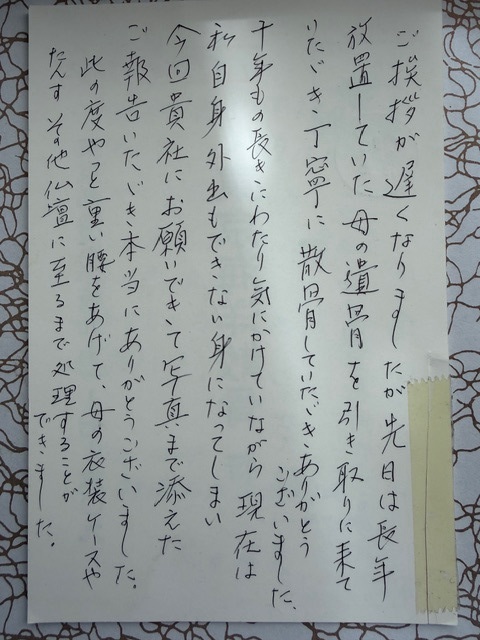 ご挨拶が遅くなりましたが先日は長年
放置していた母の遺骨を引き取りに来て
いただき丁寧に散骨していただきありがとう
ございました、
十年もの長きにわたり気にかけていながら現在は
私自身外出もできない身になってしまい
今回貴社にお願いできて写真まで添えた
ご報告いただき本当にありがとうございました。
此の度やっと重い腰をあげて、母の衣装ケースや
たんすその他仏壇に至るまで処理することが
できました。